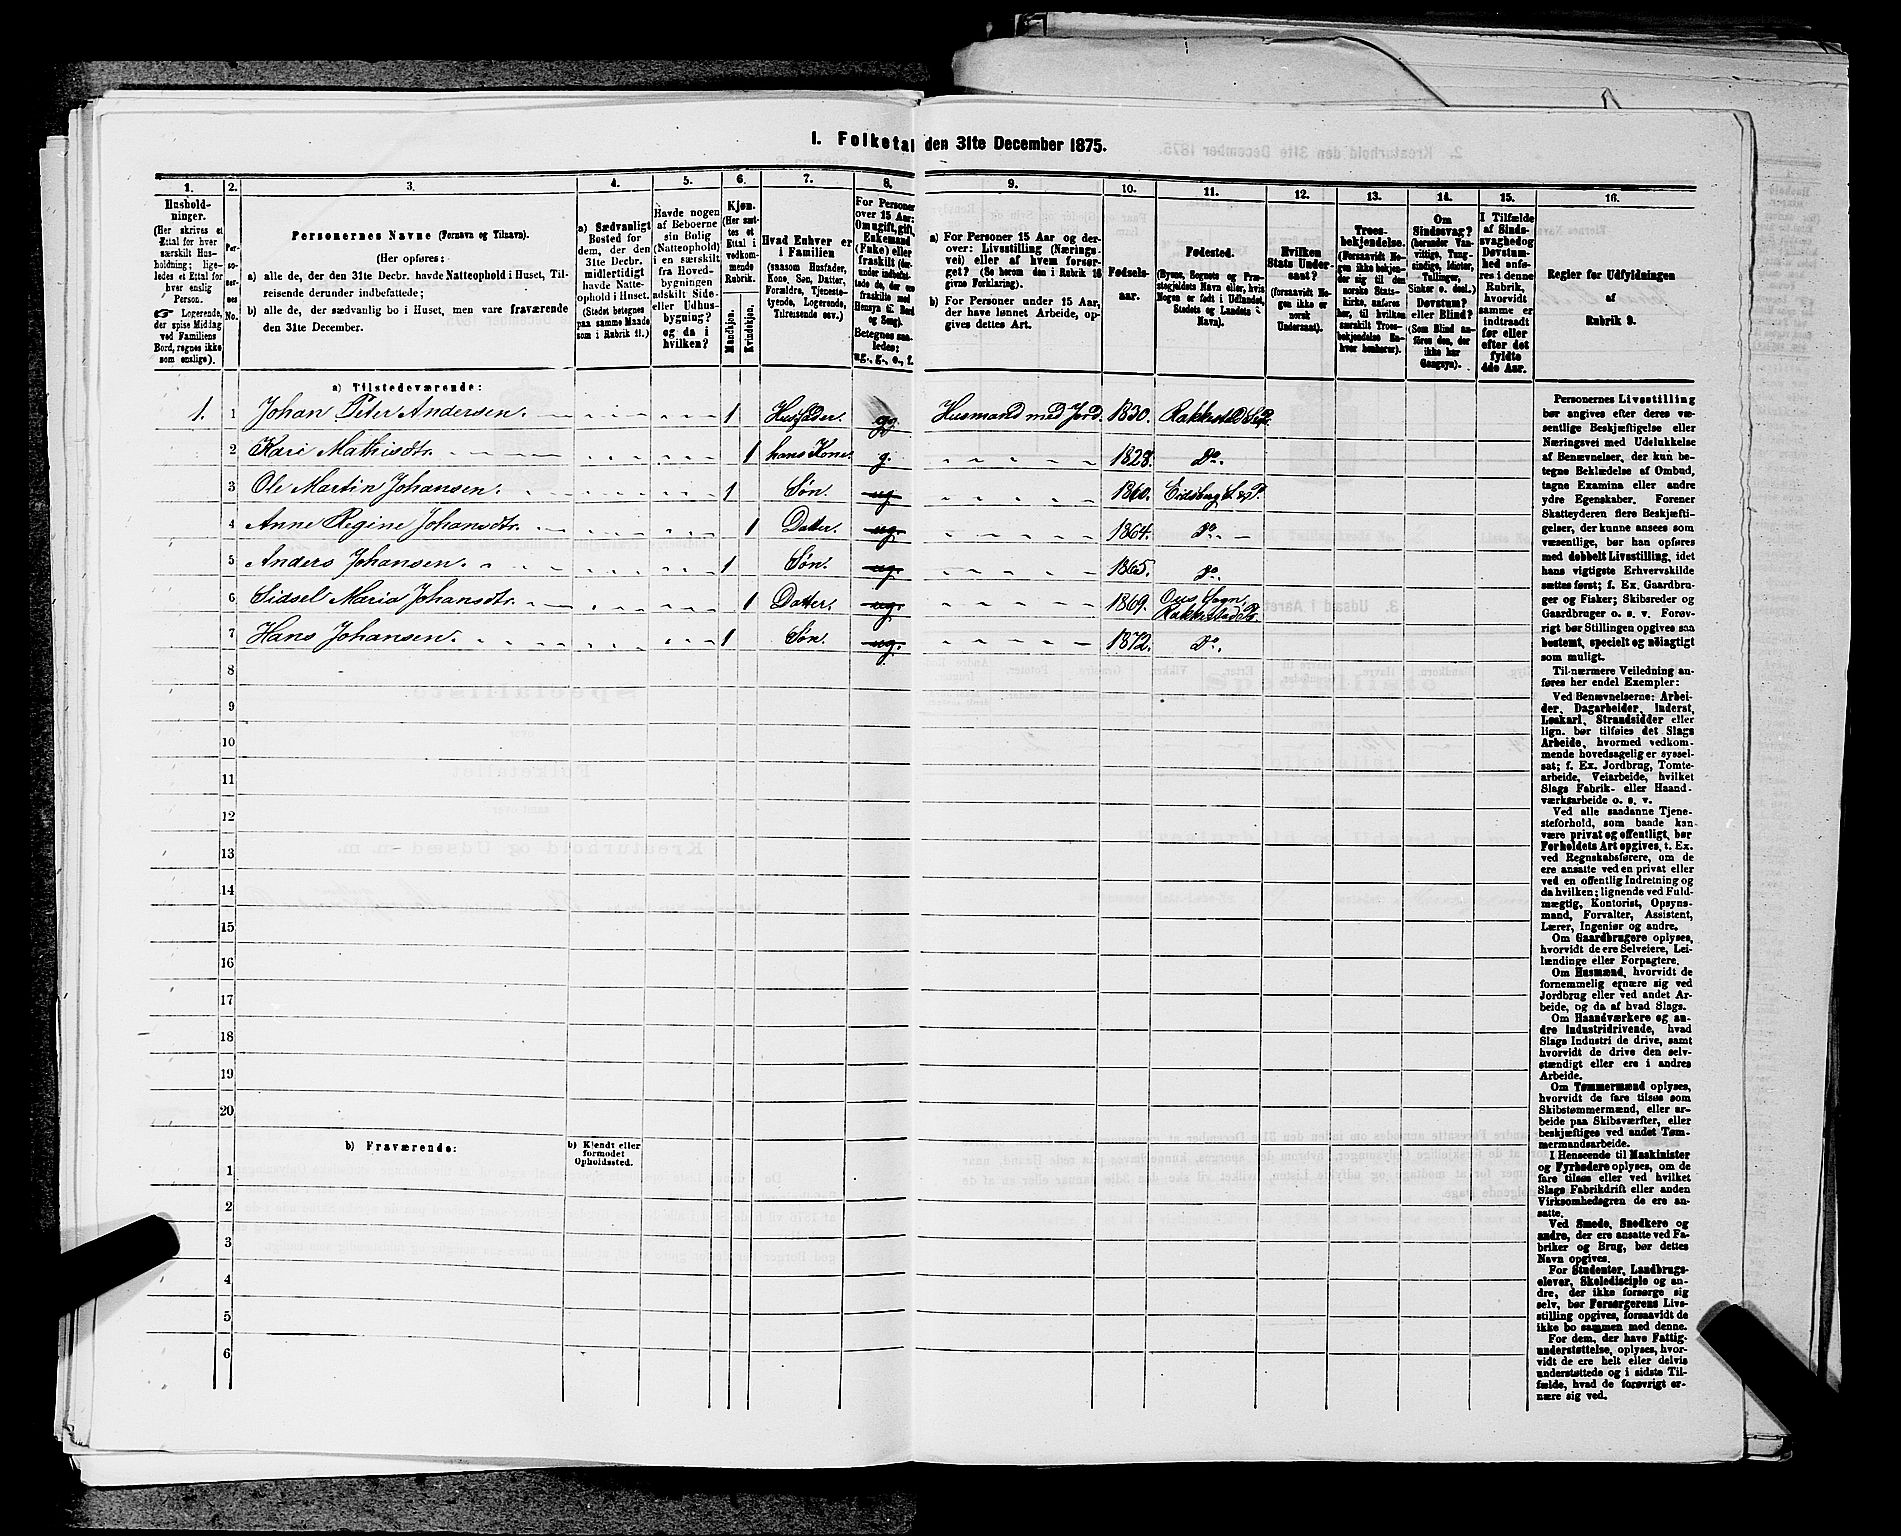 I. Folketal den 31te December 1875.
1. 2. 3. 4. 5. 6. 7. 8. 9. 10. 11. 12. 13. 14. 15. 16.
Husholdninger.
(Her skrives et
Ettal for hver
særskilt Husholdning;
ligeledes et Ettal for
hver enslig
Person.
☞ Logerende,
der spise Middag
ved Familiens
Bord, regnes ikke
som enslige).
Personernes No.
Personernes Navne (Fornavn og Tilnavn).
(Her opføres:
a) alle de, der den 31te Decbr. havde Natteophold i Huset, Tilreisende derunder indbefattede;
b) alle de, der sædvanlig bo i Huset, men vare fraværende
den 31te December.
a) Sædvanligt
Bosted for
dem, der den
31te Decbr.
midlertidigt
havde Natteophold i Huset.
(Stedet betegnes
paa samme Maade
som i Rubrik 11.)
Havde nogen
af Beboerne
sin Bolig
(Natteophold)
i en særskilt
fra Hovedbygningen
adskilt Side-
eller Udhusbygning?
og da i
hvilken?
Kjøn.
(Her sættes et
Ettal i
vedkommende
Rubrik.
Mandkjøn.
Kvindekjøn.
Hvad Enhver er
i Familien
(saasom Husfader,
Kone, Søn, Datter,
Forældre, Tjenestetyende, Logerende,
Tilreisende osv.)
For Personer
over 15 Aar:
Om ugift, gift,
Enkemand
(Enke) eller
fraskilt (derunder indbefattede de, der ere
fraskilte med
Hensyn til Bord
og Seng).
Betegnes saaledes:
ug., g., e., f.
a) For Personer 15 Aar og derover: Livsstilling (Næringsvei) eller af hvem forsørget? (Se herom den i Rubrik 16
givne Forklaring).
b) For Personer under 15 Aar,
der have lønnet Arbeide, opgives dettes Art.
Fødselsaar.
Fødested.
(Byens, Sognets og Præstegjeldets Navn eller, hvis
Nogen er født i Udlandet,
Stedets og Landets
Navn).
Hvilken
Stats Undersaat?
(forsaavidt Nogen ikke er
norsk
Undersaat).
Troesbekjendelse.
(Forsaavidt Nogen ikke bekjender sig til den
norske Statskirke, anføres
her, til hvilken
særskilt Troesbekjendelse Enhver henhører).
Om
Sindssvag?
(herunder Vanvittige, Tungsindige, Idioter,
Tullinger,
Sinker o. desl.)
Døvstum?
eller Blind?
(Som Blind anføres den, der
ikke har
Gangsyn).
I Tilfælde
af Sindssvaghed og
Døvstumhed anføres i denne
Rubrik,
hvorvidt
samme er
indtraadt
før eller
efter det
fyldte
4de Aar.
Regler for Udfyldningen
af
Rubrik 9.
a) Tilstedeværende:
1. 1 Johan Peter Andersen. 1 Husfader. g. Husmand med Jord. 1830. Rakkestad S&P.
2 Kari Mathisdtr. 1 hans Kone. g. 1828. Do.
3 Ole Martin Johansen. 1 Søn. ug. 1860. Eidsberg S&P.
4 Anne Regine Johansdtr. 1 Datter. ug. 1864. Do.
5 Anders Johansen. 1 Søn. ug. 1865. Do.
6 Sidsel Maria Johansdtr. 1 Datter. ug. 1869. Øus Sogn Rakkestad P.
7 Hans Johansen. 1 Søn. ug. 1872. Do.
8
9
10
11
12
13
14
15
16
17
18
19
20
b) Fraværende:
b) Kjendt eller
formodet
Opholdssted.
1
2
3
4
5
6
Personernes Livsstilling
bør angives efter deres væsentlige Beskjæftigelse eller
Næringsvei med Udelukkelse
af Benævnelser, der kun betegne Beklædelse af Ombud,
tagne Examina eller andre
ydre Egenskaber. Forener
Skatteyderen flere Beskjæftigelser, der kunne ansees som
væsentlige, bør han opføres
med dobbelt Livsstilling, idet
hans vigtigste Erhvervskilde
sættes først; f. Ex. Gaardbruger og Fisker; Skibsreder og
Gaardbruger o. s. v. Forøvrigt bør Stillingen opgives saa
bestemt, specielt og nøiagtigt
som muligt.
Til nærmere Veiledning anføres her endel Exempler:
Ved Benævnelserne: Arbeider, Dagarbeider, Inderst,
Løskarl, Strandsidder eller
lign. bør tilføies det Slags
Arbeide, hvormed vedkommende hovedsagelig er sysselsat; f. Ex. Jordbrug, Tomtearbeide, Veiarbeide, hvilket
Slags Fabrik- eller Haandværksarbeide o. s. v.
Ved alle saadanne Tjenesteforhold, som baade kan
være privat og offentligt, bør
Forholdets Art opgives, t. Ex.
ved Regnskabsførere, om de
ere ansatte ved en privat eller
ved en offentlig Indretning og
da hvilken; lignende ved Fuldmægtig, Kontorist, Opsynsmand, Forvalter, Assistent,
Lærer, Ingeniør og andre.
Om Gaardbrugere oplyses,
hvorvidt de ere Selveiere, Leilændinge eller Forpagtere.
Om Husmænd, hvorvidt de
fornemmelig ernære sig ved
Jordbrug eller ved andet Arbeide, og da af hvad Slags.
Om Haandværkere og andre Industridrivende, hvad
Slags Industri de drive, samt
hvorvidt de drive den selvstændigt eller ere i andres
Arbeide.
Om Tømmermænd oplyses,
hvorvidt de fare tilsøs som
Skibstømmermænd, eller arbeide paa Skibsværfter, eller
beskjæftiges ved andet Tømmermandsarbeide.
I Henseende til Maskinister
og Fyrbødere oplyses, om de
fare tilsøs eller ved hvilket
Slags Fabrikdrift eller anden
Virksomhed de ere ansatte.
Ved Smede, Snedkere og
andre, der ere ansatte ved Fabriker og Brug, bør dettes
Navn opgives.
For Studenter, Landbrugselever, Skoledisciple og andre, der ikke forsørge sig
selv, bør Forsørgerens Livsstilling opgives, forsaavidt de
ikke bo sammen med denne.
For dem, der have Fattigunderstøttelse, oplyses, hvorvidt de ere helt eller delvis
understøttede og i sidste Tilfælde, hvad de forøvrigt ernære sig ved.